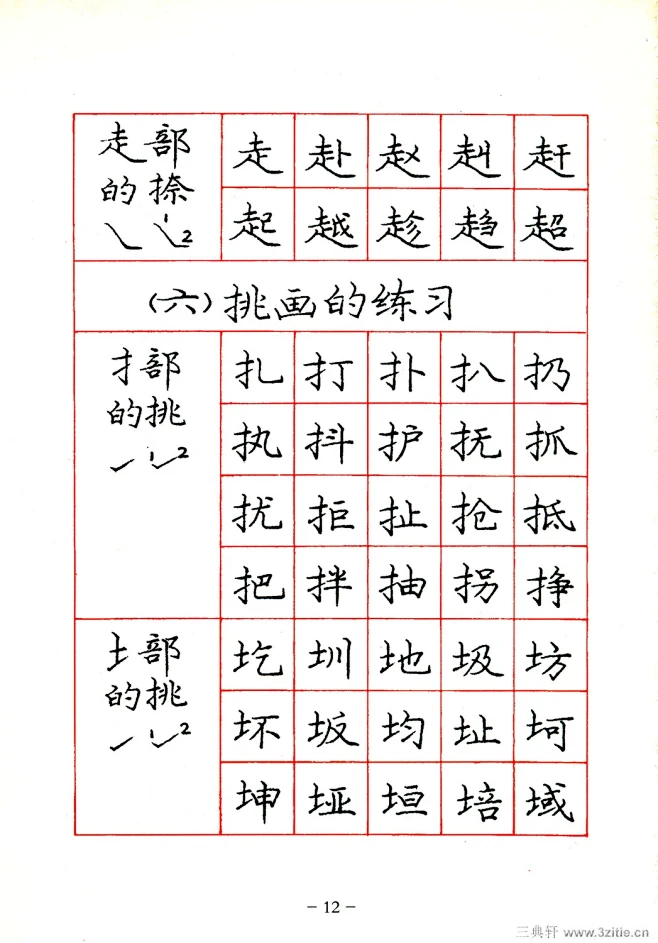 走部
的捺
1 2
走 赴 赵 赳 赶
起 越 趁 趋 超
(六)挑画的练习
扌部
的挑
1 2
扎 打 扑 扒 扔
执 抖 护 抚 抓
扰 拒 扯 抢 抵
把 拌 抽 拐 挣
土部
的挑
1 2
圪 圳 地 圾 坊
坏 坂 均 址 坷
坤 垭 垣 培 域
- 12 -
三典轩 www.3zitie.cn